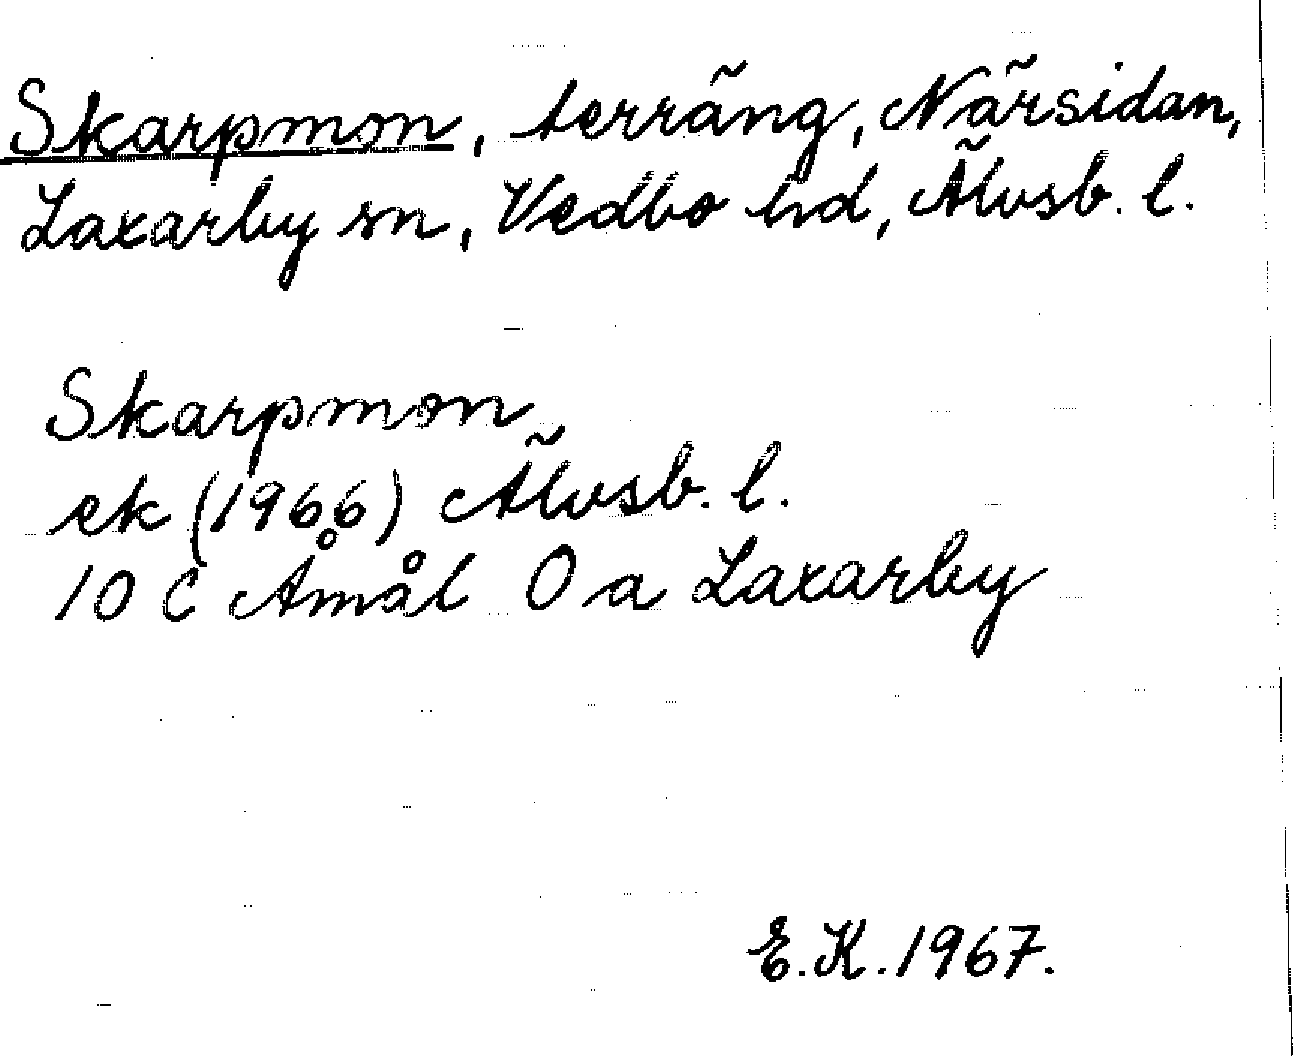 Skarpmon, terräng, Närsidan,
Laxarby sn, Vedbo hd, Älvsb. l.
Skarpmon
ek (1966) Älvsb. l.
10 C Åmål O a Laxarby
E.K. 1967.